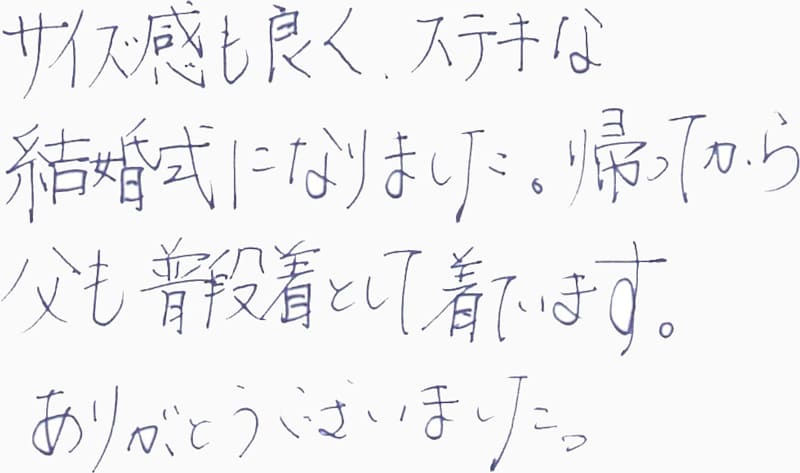 サイズ感も良く、ステキな
結婚式になりました。帰ってから
父も普段着として着ています。
ありがとうございました。